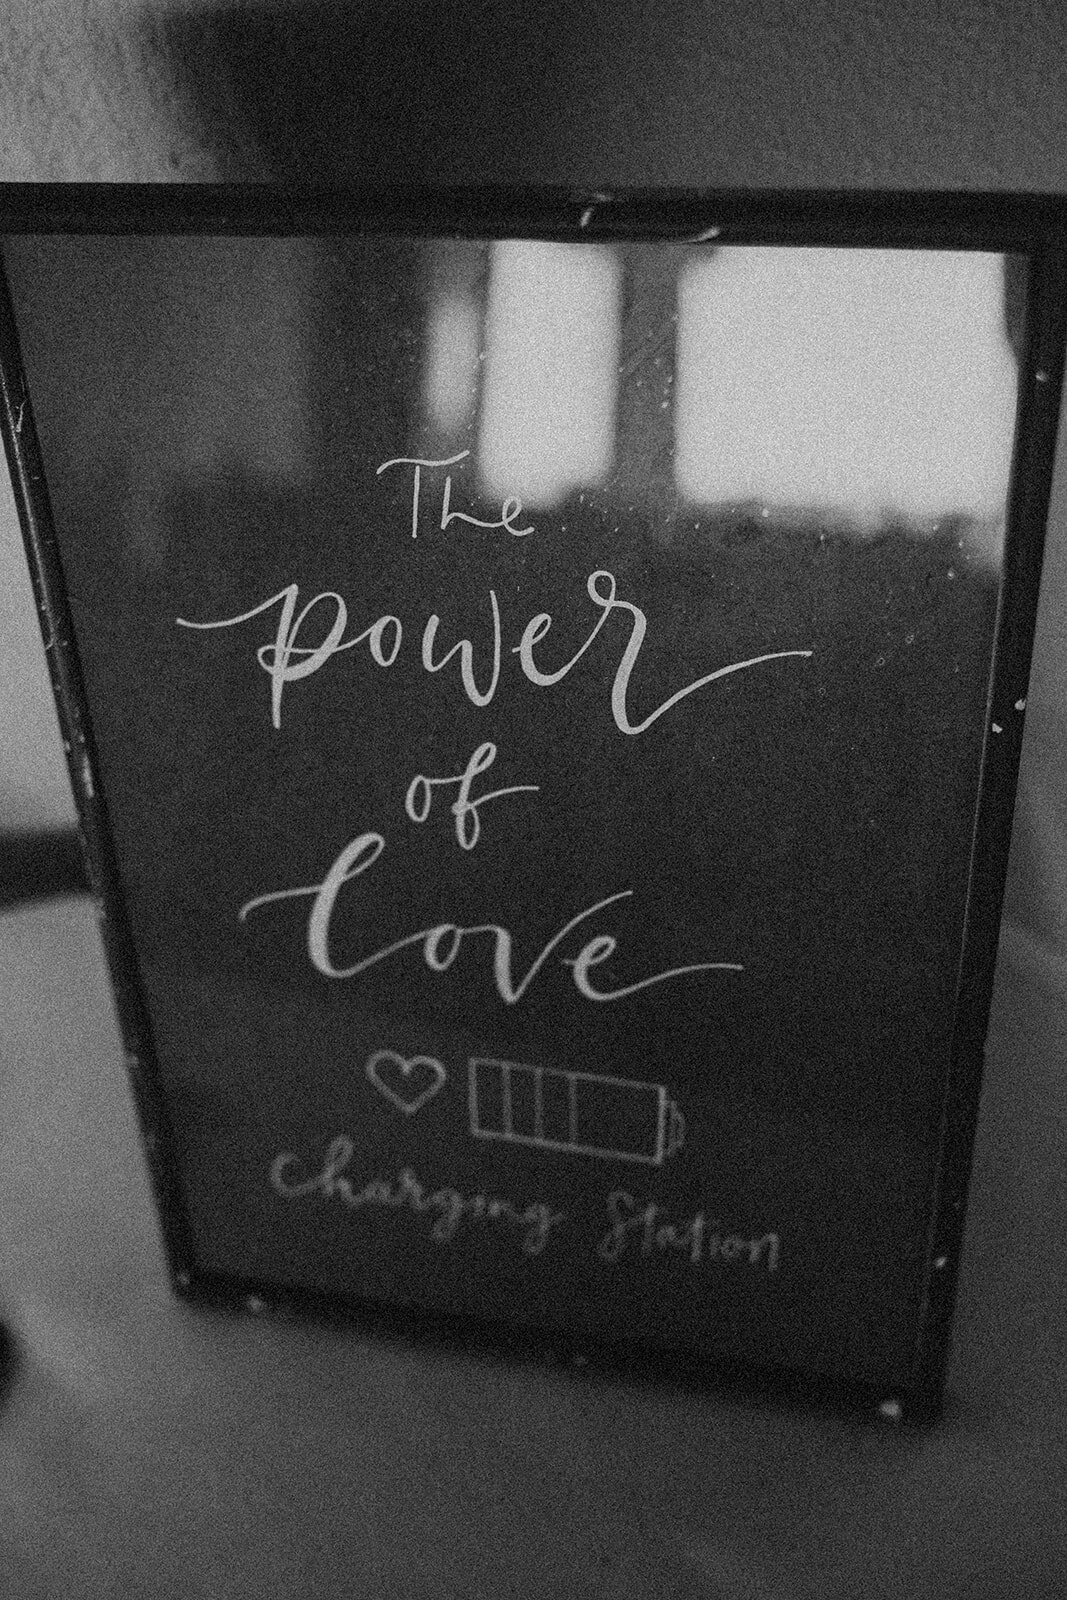 The
power
of
love
Charging Station